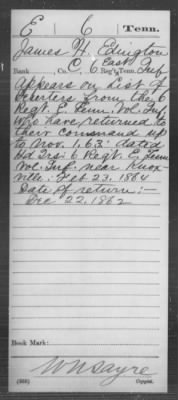 E 6 Tenn.
James H. Edington
East
Rank , Co. C, 6 Reg't Tenn. Inf
Appears on List of
Deserters from the 6
Regt. E. Tenn. Vol. Inf.
who have returned to
their command up
to Nov. 1, 63: dated
Hd Qrs. 6 Regt. E. Tenn
Vol. Inf. near Knox-
ville: Feb 23, 1864
Date of return:—
Dec 22, 1862
Book Mark:
W W Sayre
Copyist.